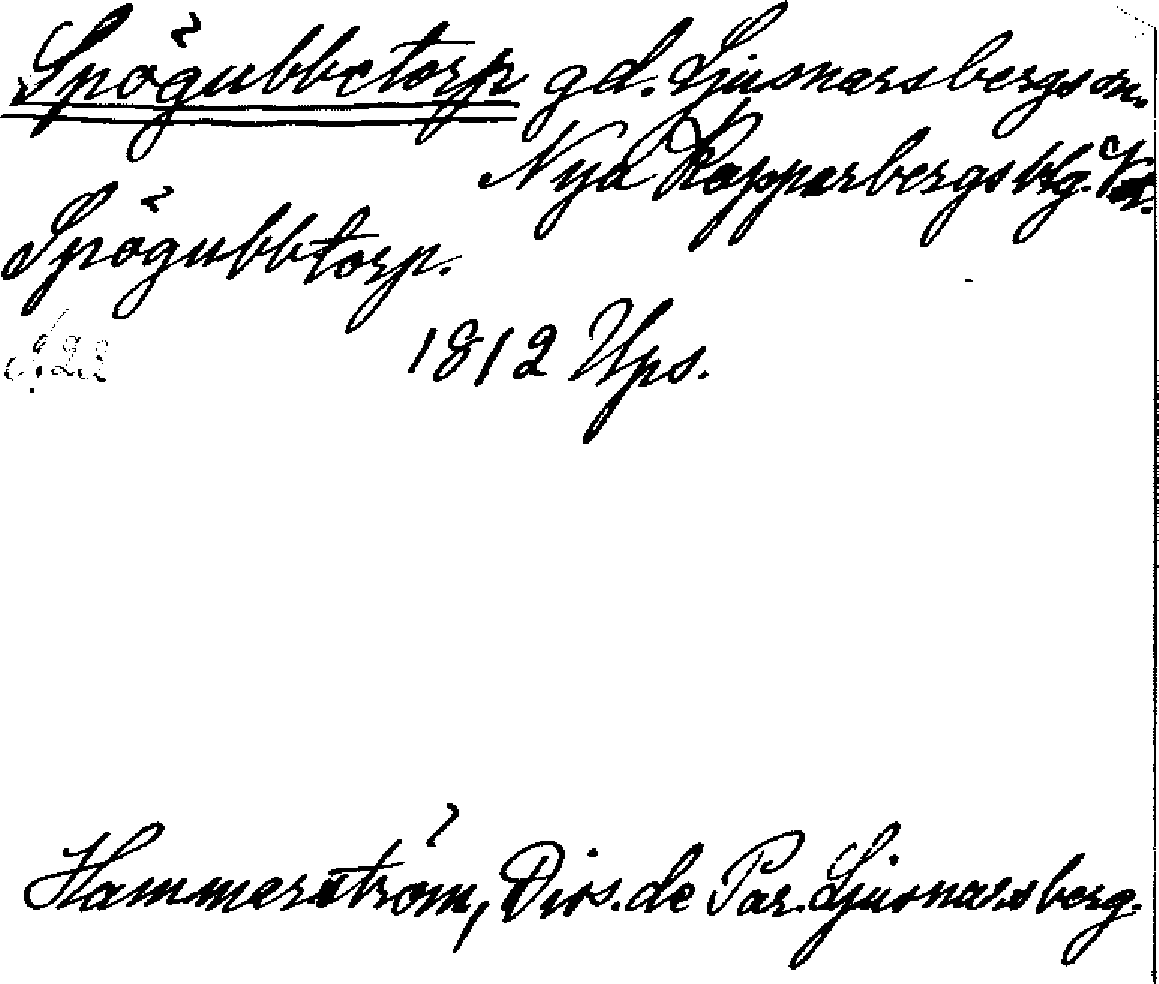 Spögubbetorp gd. Ljusnarsbergs sn.
Nya Kopparbergs blg. Vr.
Spögubbtorp.
1812 Ups.
Hammerström, Dis. de Par. Ljusnarsberg.